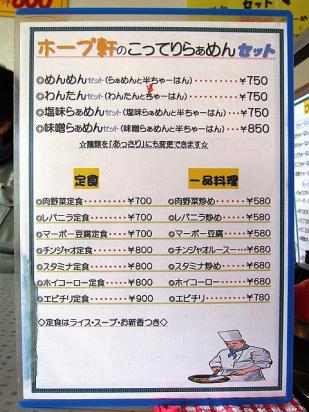 ホープ軒のこってりらぁめんセット
◎めんめんセット(らぁめんと半ちゃーはん)‥‥‥‥¥750
◎わんたんセット(わんたんと半ちゃーはん)‥‥‥‥¥750
◎塩味らぁめんセット(塩味らぁめんと半ちゃーはん)‥¥750
◎味噌らぁめんセット(味噌らぁめんと半ちゃーはん)‥¥850
☆麺類を「あっさり」にも変更できます☆
定食
◎肉野菜定食‥‥‥¥700
◎レバニラ定食‥‥¥700
◎マーボー豆腐定食‥¥700
◎チンジャオ定食‥‥¥800
◎スタミナ定食‥‥‥¥800
◎ホイコーロー定食‥¥800
◎エビチリ定食‥‥‥¥900
一品料理
◎肉野菜炒め‥‥‥¥580
◎レバニラ炒め‥‥¥580
◎マーボー豆腐‥‥¥580
◎チンジャオルースー‥¥680
◎スタミナ炒め‥‥¥680
◎ホイコーロー‥‥¥680
◎エビチリ‥‥‥‥¥780
◇定食はライス・スープ・お新香つき◇